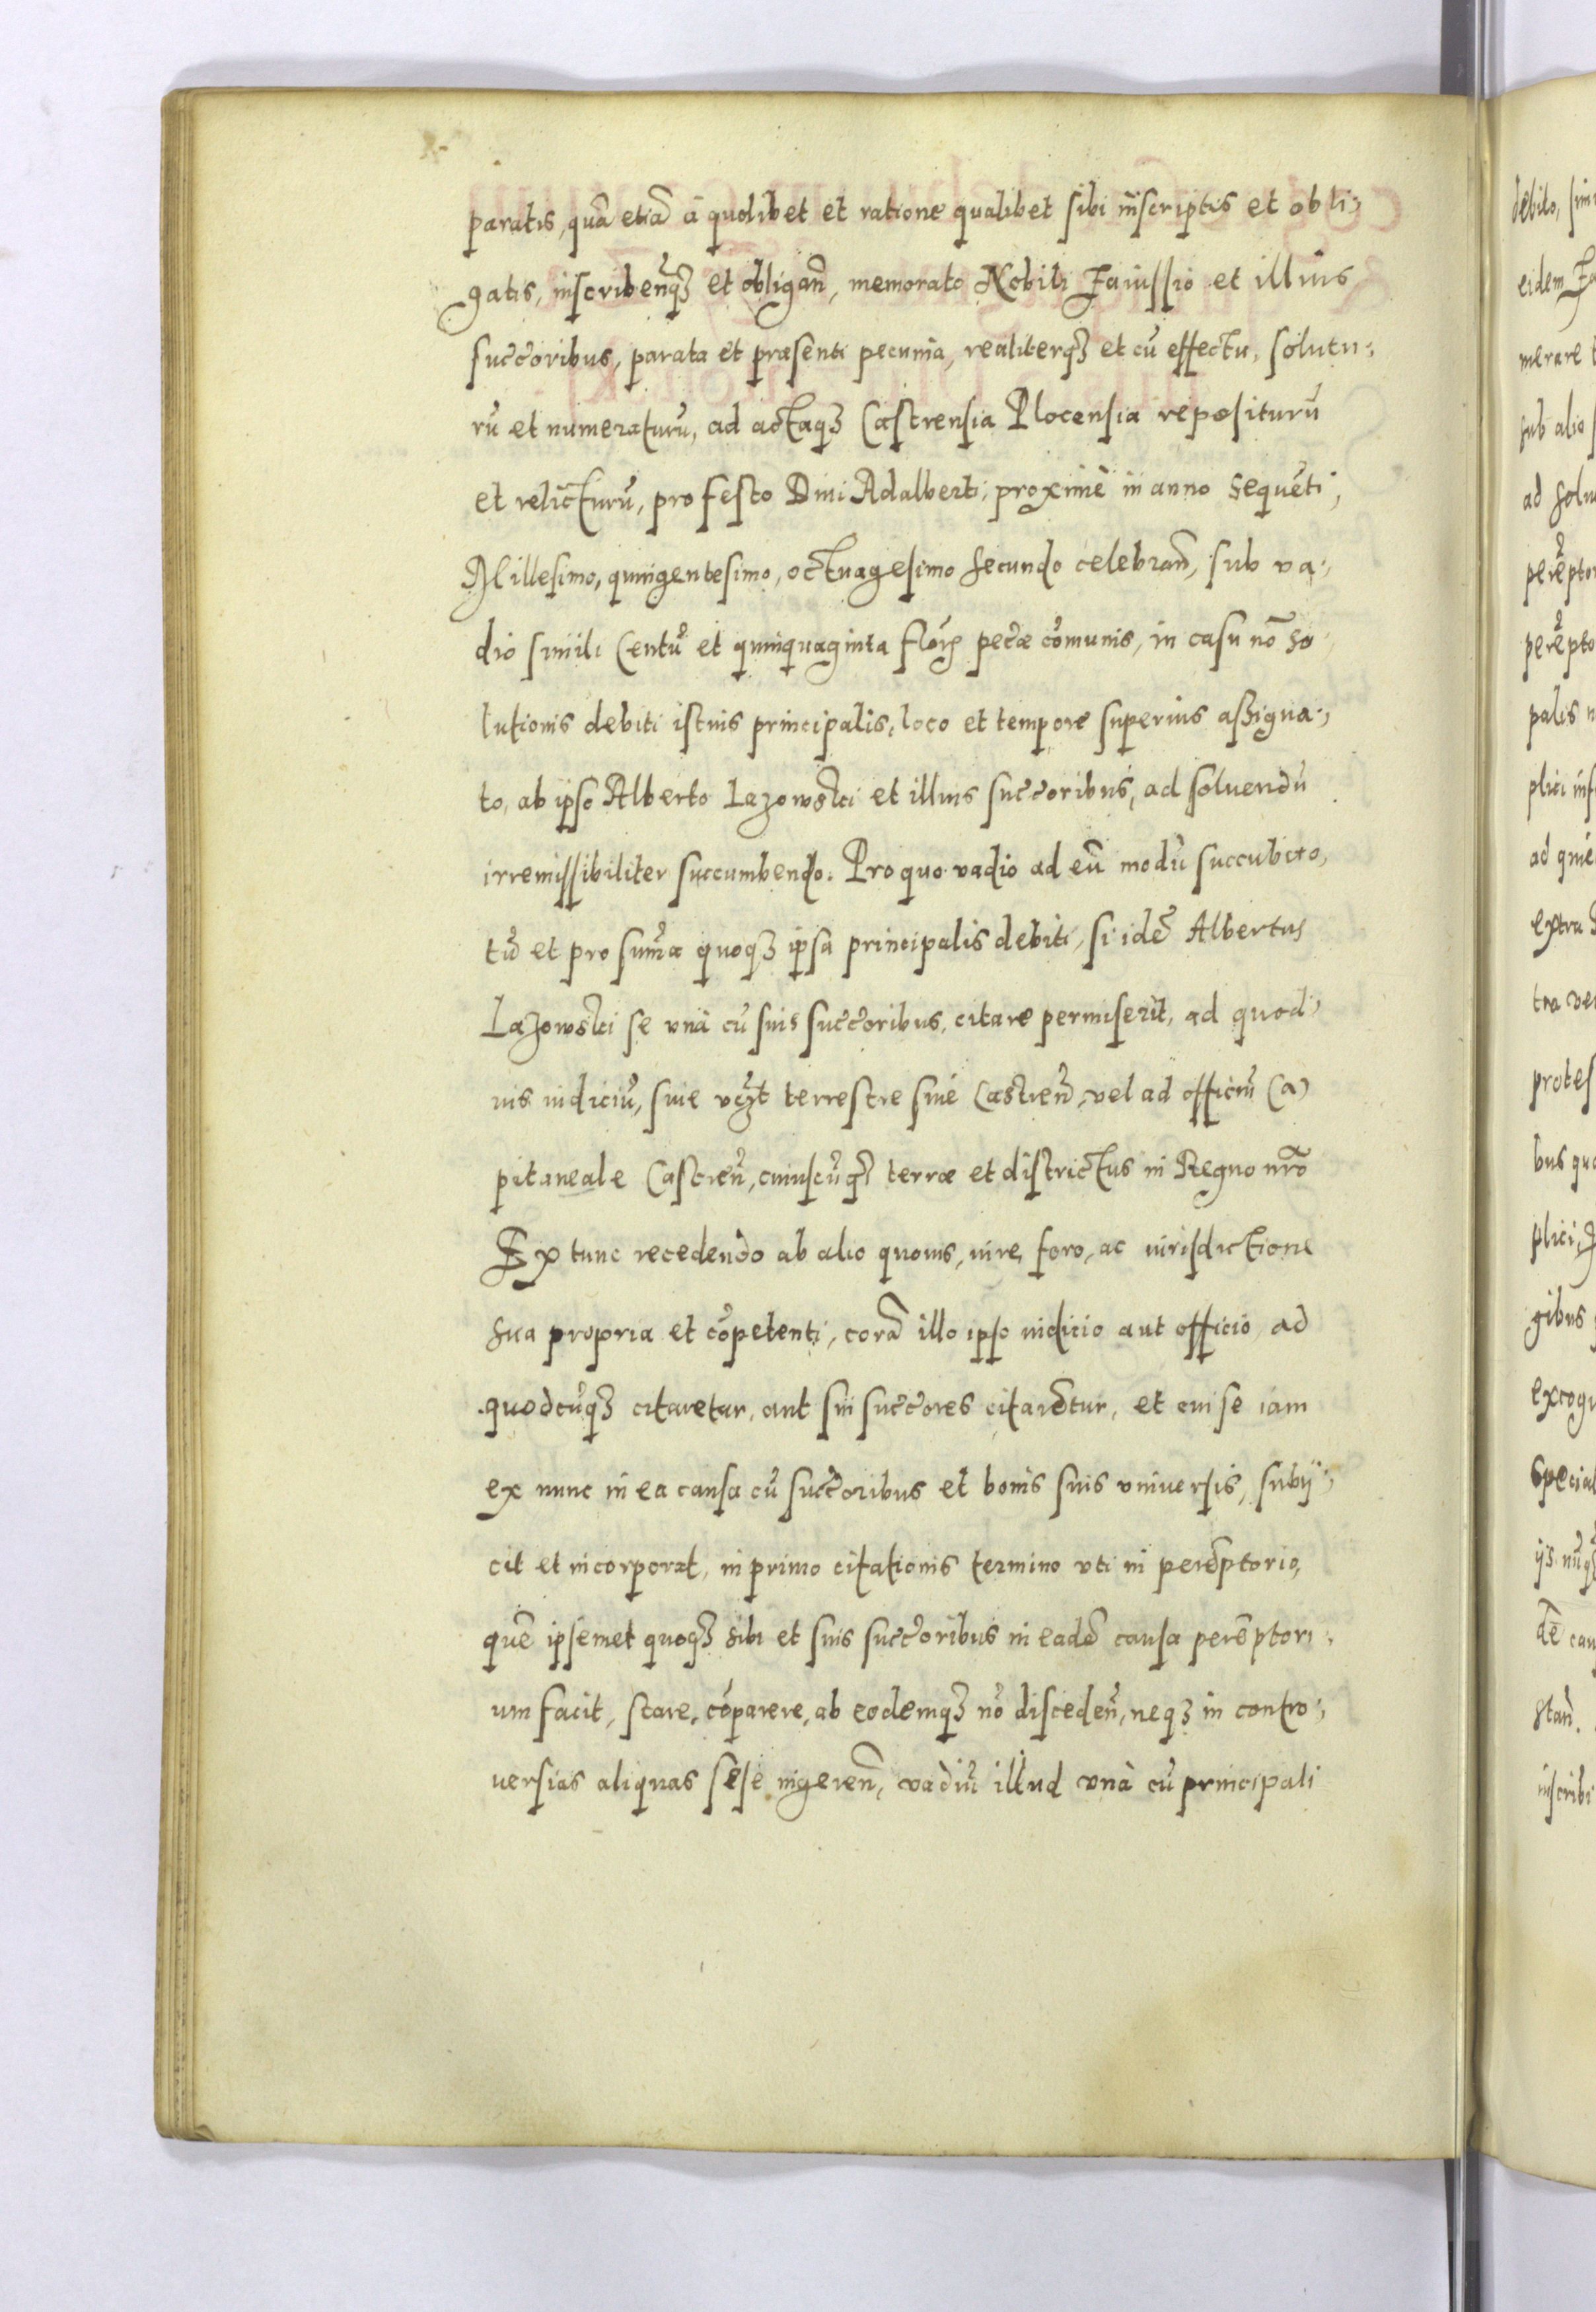 paratis, quā etiā à quolibet et ratione qualibet sibi inscriptis et obli-
gatis, inscribenꝗȝ et obligan̄, memorato Nobili Faiussio et illius
succ̄oribus, parata et præsenti pecunia, realiterqȝ et cū effectu, solutu-
rū et numeraturū, ad actaqȝ Castrensia Plocensia repositurū
et relicturū, pro festo Diui Adalberti, proximè in anno sequēti,
Millesimo, quingentesimo, octuagesimo secundo celebran̄, sub va-
dio simili Centū et quinquaginta floꝝ pec̄æ cōmunis, in casu nō so-
lutionis debiti istius principalis, loco et tempore superius aßigna-
to, ab ipso Alberto Lazowski et illius succ̄oribus, ad soluendū
irremissibiliter succumbendo. Pro quo vadio ad eū modū succubito,
tū et pro sum̄a quoqȝ ipsa principalis debiti, si idē Albertus
Lazowski se vnà cū suis succ̄oribus, citare permiserit, ad quod-
uis iudiciū, siue terrestre siue Castren̄, vel ad officiū Ca-
pitaneale Castren̄, cuiuscūqȝ terræ et districtus in Regno nr̄o
Ex tunc recedendo ab alio quouis, iure, foro, ac iurisdictione
sua propria et cōpetenti, corā illo ipso iudicio aut officio, ad
quodcūqȝ citaretur, aut sui succ̄ores citarētur, et cui se iam
ex nunc in ea causa cū succ̄oribus et bonis suis vniuersis, subij-
cit et incorporat, in primo citationis termino vti in perēptorio,
quē ipsemet quoqȝ sibi et suis succ̄oribus in eadē causa perēptori-
um facit, stare, cōparere, ab eodemqȝ nō disceden̄, neqȝ in contro-
uersias aliquas sese ingeren̄, vadiū illud vnà cū principali
debito,
eidem
merare
sub alio
ad
palis
extra
protes
plici,
gibus